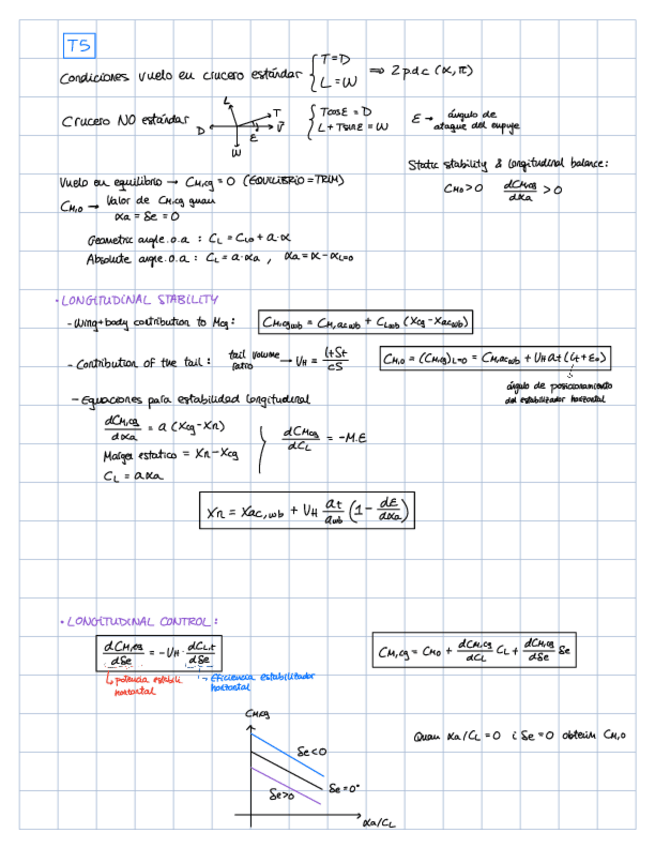 T5
Condiciones vuelo en crucero estándar { T=D L=W ⇒ 2 p.d.c (α, π)
Crucero NO estándar
L
T
D
V
ε
W
{ Tcosε = D L + Tsinε = W
ε → ángulo de ataque del empuje
Static stability & longitudinal balance:
CM0 > 0 dCM,cg/dαa > 0
Vuelo en equilibrio → CM,cg = 0 (EQUILIBRIO = TRIM)
CM,0 → Valor de CM,cg quan αa = δe = 0
Geometric angle.o.a : CL = CL0 + a·α
Absolute angle.o.a : CL = a·αa , αa = α - αL=0
· LONGITUDINAL STABILITY
- Wing+body contribution to Mcg: CM,cgwb = CM,acwb + CLwb (Xcg - Xacwb)
- Contribution of the tail : tail volume ratio → VH = ltSt/cS
CM,0 = (CM,cg)L=0 = CM,acwb + VH at (it + ε0)
ángulo de posicionamiento
del estabilizador horizontal
- Equaciones para estabilidad longitudinal
dCM,cg/dαa = a (Xcg - Xn)
Margen estatico = Xn - Xcg
CL = a αa
dCMcg/dCL = -M.E
Xn = Xac,wb + VH at/awb (1 - dε/dαa)
· LONGITUDINAL CONTROL :
dCM,cg/dδe = -VH · dCL,t/dδe
↳ potencia estabili. horizontal
→ Eficiencia estabilizador horizontal
CM,cg = CM0 + dCM,cg/dCL CL + dCM,cg/dδe δe
CM,cg
δe<0
δe=0°
δe>0
αa/CL
Quan αa/CL = 0 i δe = 0 obtenim CM,0